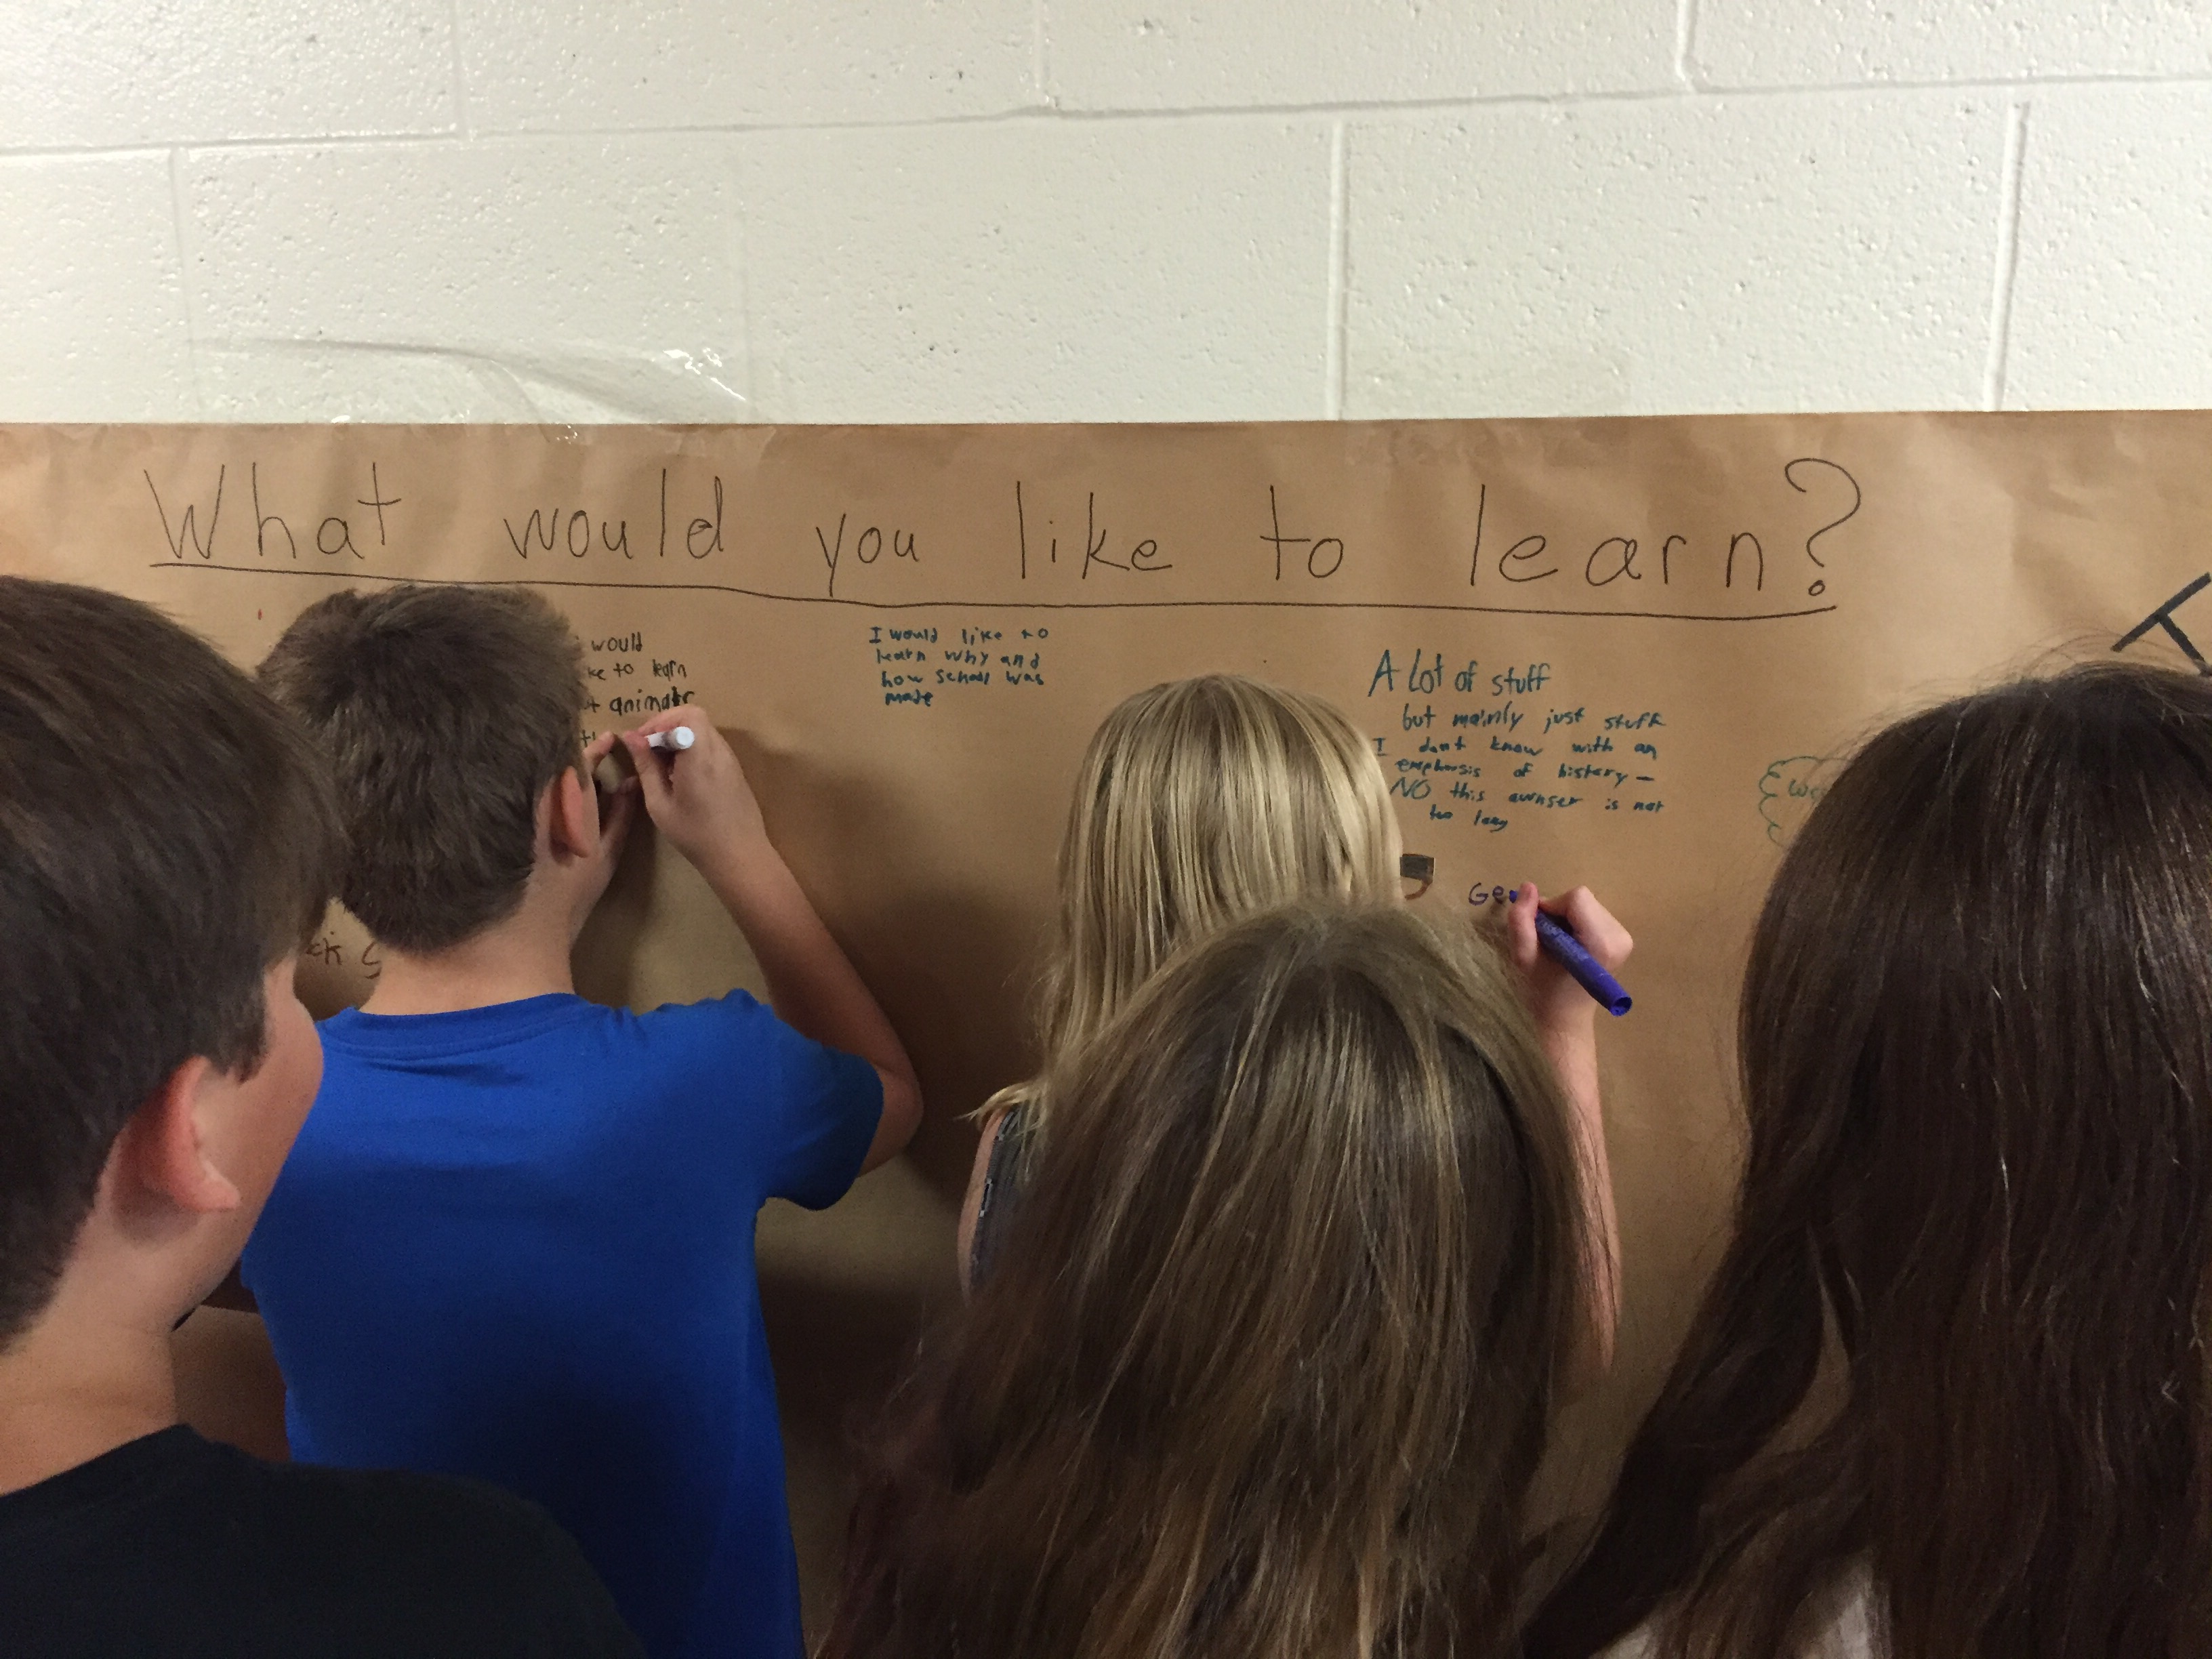 What would you like to learn?
would
to learn
animals
I would like to
learn why and
how school was
made
A Lot of stuff
but mainly just stuff
I dont know with an
emphasis of history —
NO this awnser is not
too long